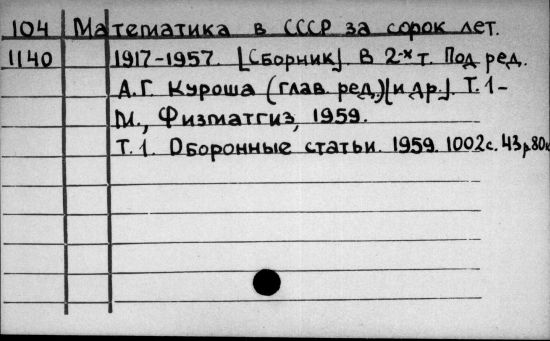 104 Математика в СССР за сорок лет.
1140 1917-1957. [Сборник]. В 2-х т. Под ред.
А.Г. Куроша (глав. ред.) [и др.]. Т. 1-
М., Физматгиз, 1959.
Т. 1. Оборонные статьи. 1959. 1002 с. 43 р. 80 к